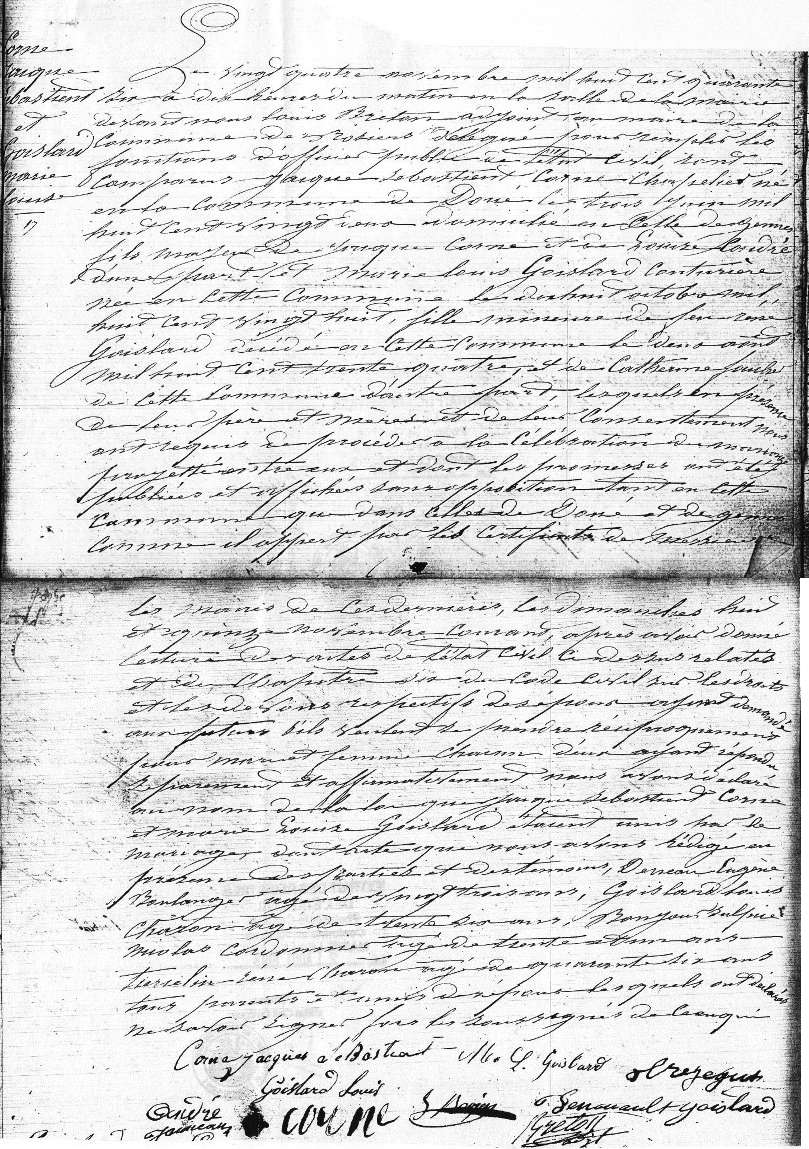 Corne
Jacque
Sébastient
et
Goislard
marie
Louise
Le vingt quatre novembre mil huit cent quarante
six à dix heures du matin en la salle de la mairie
devant nous Louis Breton adjoint au maire de la
Commune de rosiers délégué pour remplir les
fonctions d'officier public de l'état civil sont
comparus Jacque Sébastient Corne Chapelier né
en la commune de Doué le trois juin mil
huit cent vingt domicilié en Celle de gennes
fils majeur de Jacque Corne et de Louise Coudré
d'une part, et Marie Louis Goislard Couturière
née en Cette Commune le dixhuit octobre mil
huit cent vingt huit, fille mineure de feu rené
Goislard décédé en Cette Commune le deux août
mil huit cent trente quatre, et de Catherine
de Cette Commune d'autre part, lesquels en présence
de leur père et mères et de leur Consentement nous
ont requis de procéder à la Célébration du mariage
projetté entre eux et dont les promesses ont étés
publiées et affichées sans opposition tant en Cette
Commune que dans Celles de Doué et de gennes
Comme il appert par les Certificats de
les maires de Ces dernières, les dimanches huit
et quinze novembre Courant, après avoir donné
lecture des actes de l'état Civil Ci dessus relatés
et du Chapitre six du Code Civil sur les droits
et les devoirs respectifs des époux ayant demandé
aux futurs s'ils veulent se prendre réciproquement
pour mari et femme Chacun d'eux ayant répondu
séparément et affirmativement nous avons déclaré
au nom de la loi que Jacque Sébastient Corne
et marie Louise Goislard étaient unis par le
mariage, dont acte que nous avons rédigé en
présence des parties et des témoins, Eugène
Boulanger agé de vingt trois ans, Goislard Louis
Charon agé de trente six ans, Bonjour Sulpice
nicolas Cordonnier agé de trente et un ans
rené Charon agé de quarante six ans
tous parents et amis des époux lesquels ont déclarés
ne savoir signer fors les soussignés de Ce enquis
Corne Jacques Sébastient M L Goislard
Goislard Louis
Coudré Corne Renouault Goislard
Breton